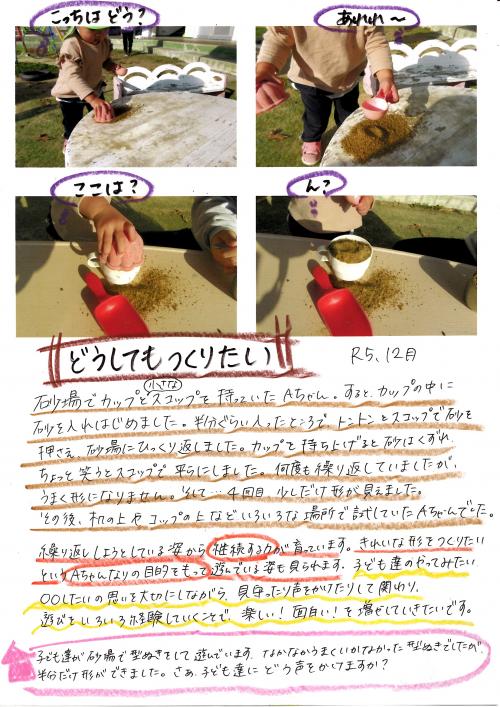 こっちは どう?
あれれ〜
ここは?
ん?
どうしてもつくりたい
R5、12月
小さな
砂場でカップとスコップを 持っていた Aちゃん。すると、カップの中に
砂を入れはじめました。半分ぐらい入ったところで、トントンとスコップで砂を
押さえ、砂場にひっくり返しました。カップを持ち上げると砂はくずれ、
ちょっと笑うとスコップで平らにしました。何度も繰り返していましたが、
うまく形になりません。そして…4回目 少しだけ形が見えました。
その後、机の上やコップの上など いろいろな 場所で 試していた Aちゃんでした。
繰り返ししようとしている姿から 持続する力が 育っています。きれいな形をつくりたい
という Aちゃんなりの目的をもって遊んでいる姿も見られます。子ども達のやってみたい
〇〇したいの思いを大切にしながら、見守ったり声をかけたりして関わり、
遊びをいろいろ経験していくことで、楽しい!面白い!を増やしていきたいです。
子ども達が砂場で型ぬきをして遊んでいます。なかなかうまくいかなかった型ぬきでしたが、
半分だけ形ができました。さあ、子ども達にどう声をかけますか?